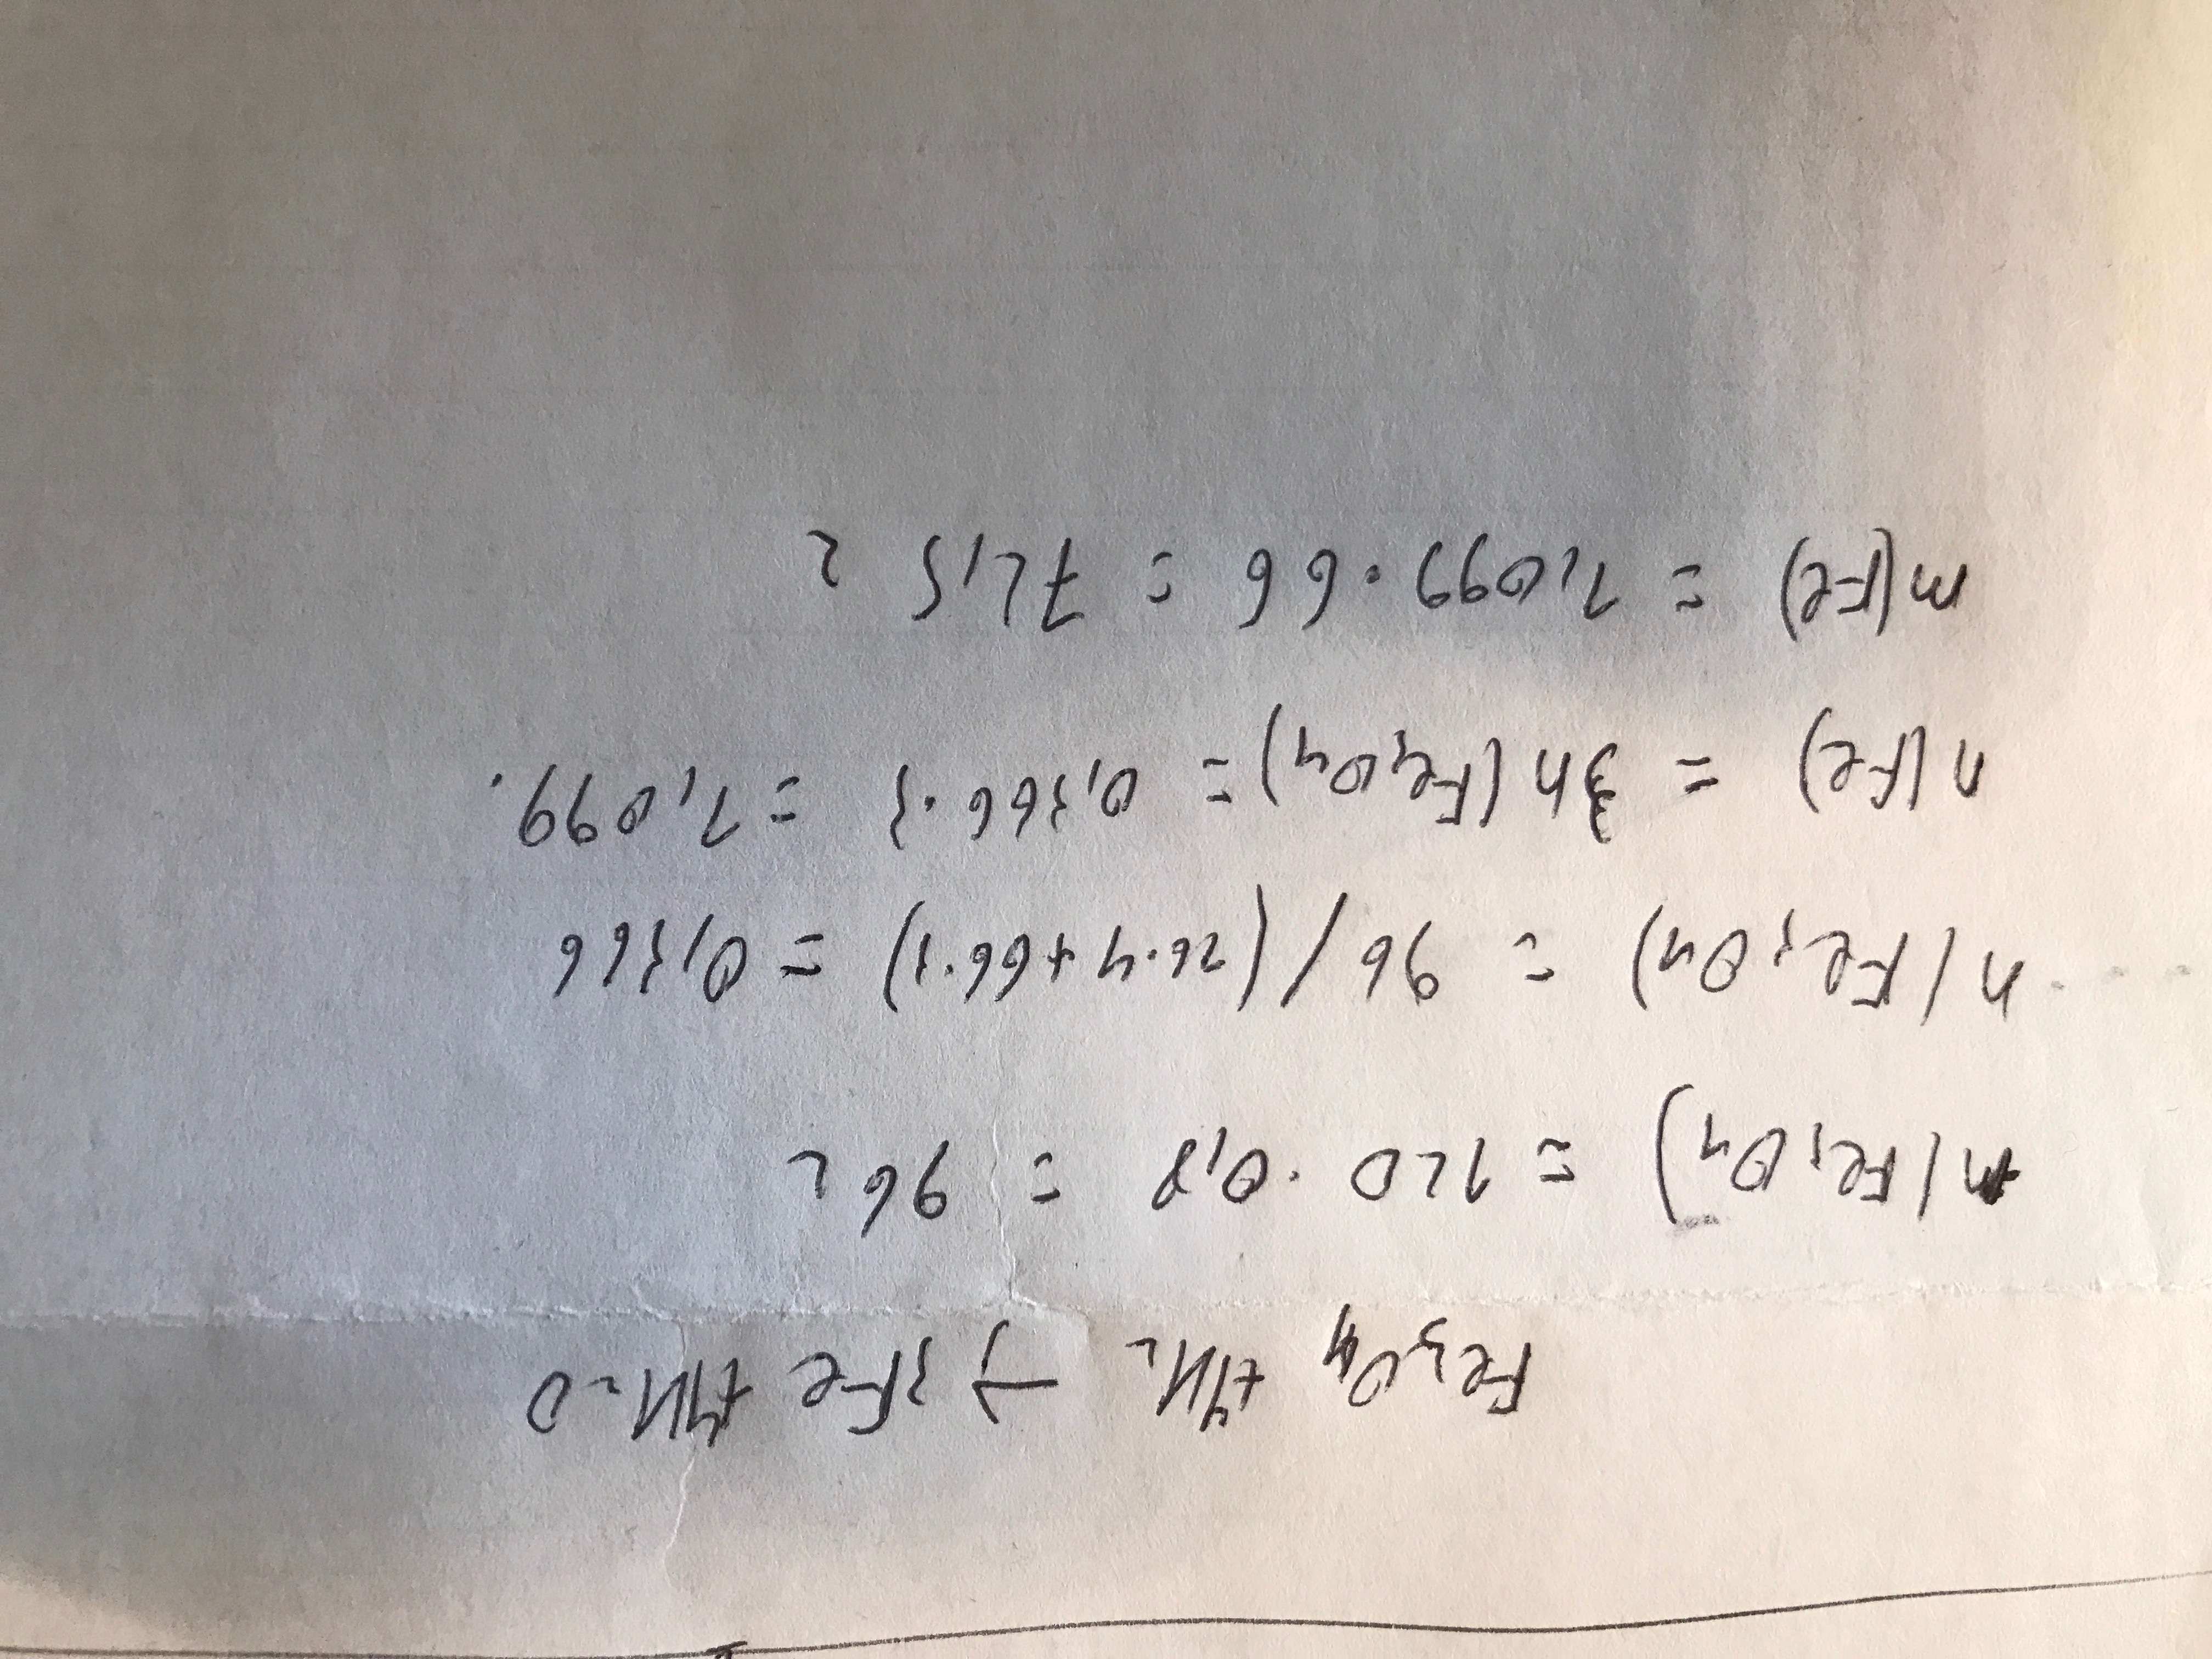 Fe₃O₄ +4H₂ → 3Fe +4H₂O
m(Fe₃O₄) = 120 · 0,8 = 96 г
n(Fe₃O₄) = 96/(16·4+66·3) = 0,366
n(Fe) = 3n(Fe₃O₄) = 0,366·3 = 1,099.
m(Fe) = 1,099·66 = 72,5 г